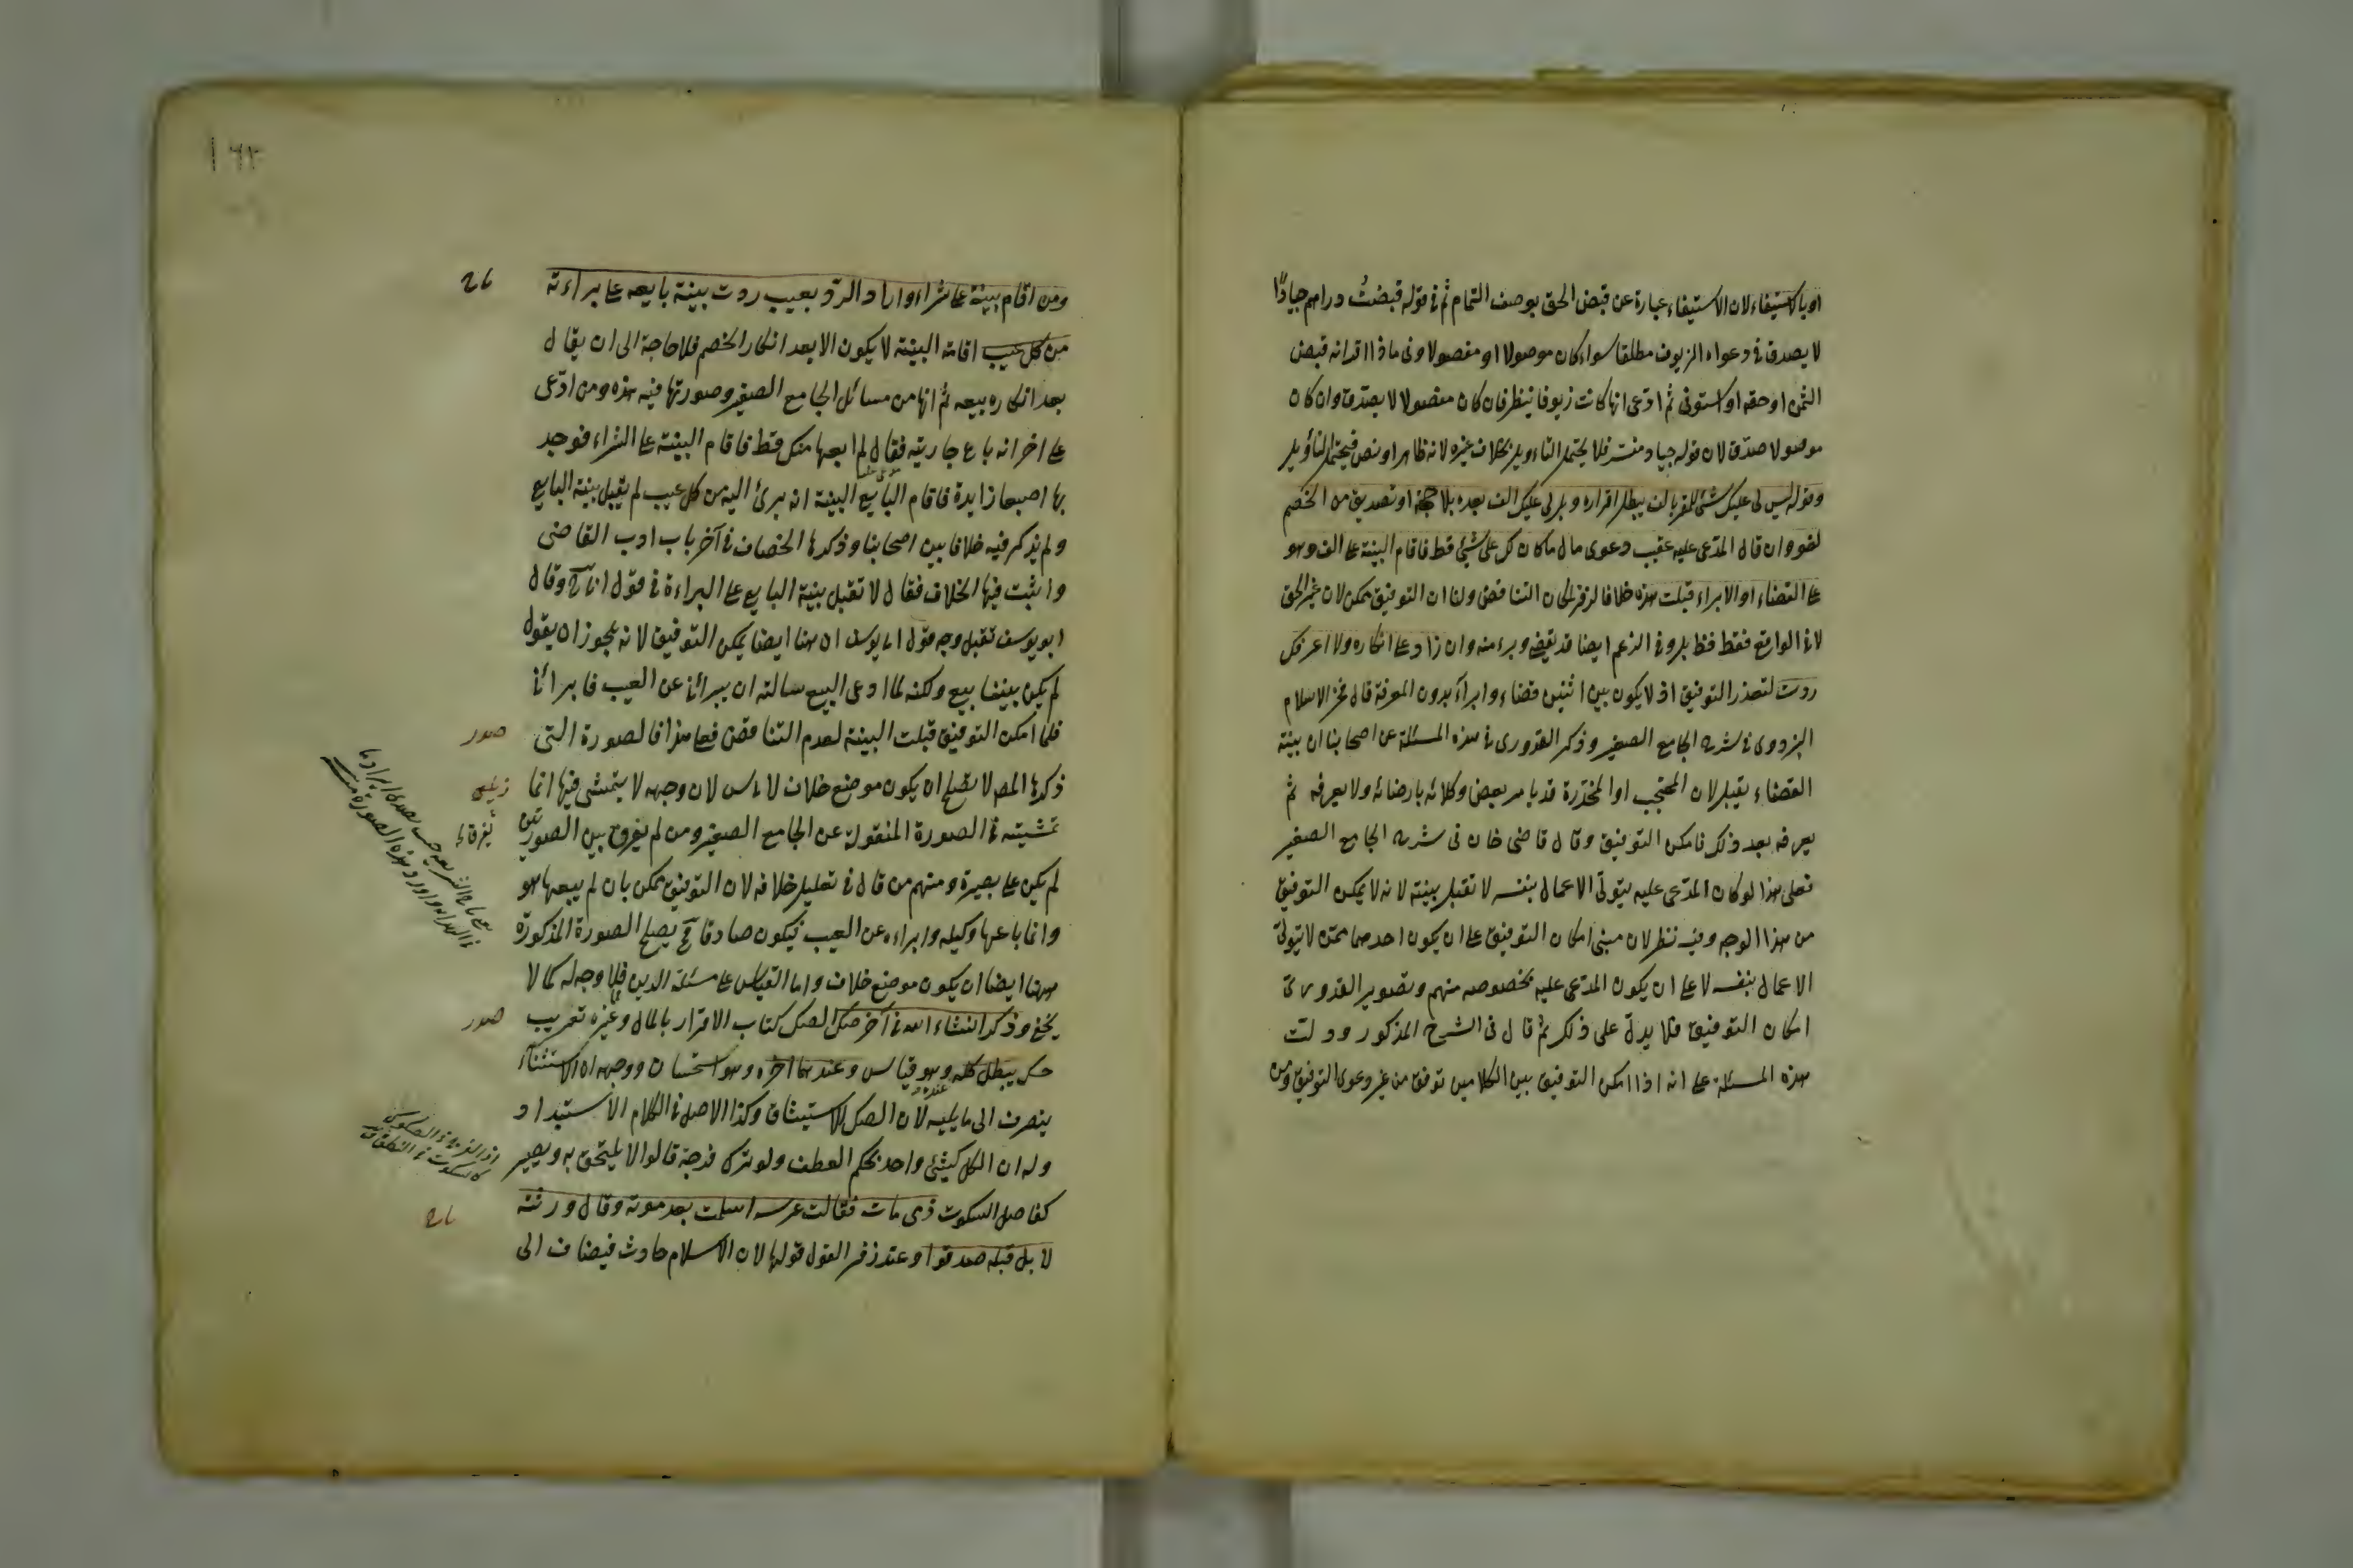 او بالاستيفاء لان الاستيفاء عبارة عن قبض الحق بوصف التمام ثم فى قوله قبضتُ دراهم جيادًا
لا يصدق فى دعواه الزيوف مطلقا سواء كان موصولا او مفصولا وفى ما ذا اقر انه قبض
الثمن او حقه او استوفى ثم ادعى انها كانت زيوفا ينظر فان كان مفصولا لا يصدق وان كان
موصولا صدّق لان قوله جياد مفسّر فلا يحتمل التاءويل بخلاف غيره لانه ظاهر او نص فيحتمل التأويل
وقوله ليس لى عليك شئ للمقر بالف يبطل اقراره وبل لى عليك الف بعده بلا حجة او تصديق من الخصم
لغو وان قال المدّعى عليه عقيب دعوى مال ما كان لك على شئ قط فاقام البينة على الف وهو
على القضاء او الابراء قبلت هذه خلافا لزفر لمكان التناقض ولنا ان التوفيق ممكن لان غير الحق
لا فى الواقع فقط بل وفى الزعم ايضا قد يقضى ويبرء منه وان زاد على انكاره ولا اعرفك
ردت لتعذر التوفيق اذ لا يكون بين اثنين قضاء وابراء بدون المعرفة قال فخر الاسلام
البزدوى فى شرح الجامع الصغير وذكر القدورى فى هذه المسئلة عن اصحابنا ان بينة
القضاء تقبل لان المحتجب او المخدّرة قد يامر بعض وكلائه بارضائه ولا يعرفه ثم
يعرفه بعد ذلك فامكن التوفيق وقال قاضى خان فى شرح الجامع الصغير
فعلى هذا لو كان المدّعى عليه يتولّى الاعمال بنفسه لا تقبل بينته لانه لا يمكن التوفيق
من هذا الوجه وفيه نظر لان مبنى امكان التوفيق على ان يكون احدهما ممّن لا يتولّى
الاعمال بنفسه لا على ان يكون المدّعى عليه بخصوصه منهم وتصوير القدورى
امكان التوفيق فلا يدلّ على ذلك ثم قال فى الشرح المذكور ودلّت
هذه المسئلة على انه اذا امكن التوفيق بين الكلامين توفق من غير دعوى التوفيق ومن
١٦٣
ومن اقام بينة على شراء واراد الردّ بعيب ردت بينة بايعه على براءته
من كل عيب اقامة البينة لا يكون الا بعد انكار الخصم فلا حاجة الى ان يقال
بعد انكاره بيعه ثم انها من مسائل الجامع الصغير وصورتها فيه هذه ومن ادّعى
على اخر انه باع جاريته فقال لم ابعها منك قط فاقام البينة على الشراء فوجد
بها اصبعا زايدة فاقام البايع البينة انه برئ اليه من كل عيب لم يقبل بينة البايع
ولم يذكر فيه خلافا بين اصحابنا وذكرها الخصاف فى آخر باب ادب القاضى
واثبت فيها الخلاف فقال لا تقبل بينة البايع على البراءة فى قول وقال
ابو يوسف تقبل وجه قول ابى يوسف ان هنا ايضا يمكن التوفيق لانه يجوز ان يقول
لم يكن بيننا بيع ولكنه لما ادعى البيع سالته ان يبرأنى عن العيب فابرأنى
فلما امكن التوفيق قبلت البينة لعدم التناقض فعلى هذا فالصورة التى
ذكرها المصـ لا يصلح ان يكون موضع خلاف لان وجهه لا يتمشى فيها انما
تمشيته فى الصورة المنقولة عن الجامع الصغير ومن لم يفرق بين الصورتين
لم يكن على بصيرة ومنهم من قال فى تعليل خلافه لان التوفيق ممكن بان لم يبعها هو
وانما باعها وكيله وابراءه عن العيب فيكون صادقا فح يصلح الصورة المذكورة
ههنا ايضا ان يكون موضع خلاف واما القياس على مسئلة الدين فلا وجه له كما لا
يخفى وذكر انشاء الله فى آخر صك الصك كتاب الاقرار بالمال وغيره تعريب
صك يبطل كله وهو قياس وعندهما اخره وهو استحسان ووجهه ان الاستثناء
ينصرف الى ما يليه لان الصك للاستيثاق وكذا الاصل فى الكلام الاستبداد
وله ان الكل كشئ واحد بحكم العطف ولو ترك فرجة قالوا لا يلتحق به ويصير
كفاصل السكوت ذمى مات فقالت عرسه اسلمت بعد موته وقال ورثته
لا بل قبله صدقوا وعند زفر القول قولها لان الاسلام حادث فيضاف الى
صور
زيلعى
صور